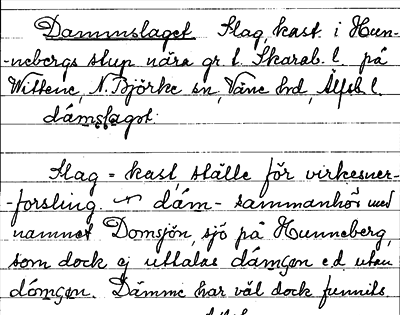 Dammslaget Slag, kast i Hun-
-nebergs stup nära gr. t. Skarab. l. på
Wittene, N. Björke sn, Väne hd, Älfsb l.
dámslagət.
Slag = kast, ställe för virkesner-
-forsling. dám- sammanhör med
namnet Domsjön, sjö på Hunneberg,
som dock ej uttalas dámʃən e.d. utan
dómʃən. Dämme har väl dock funnits